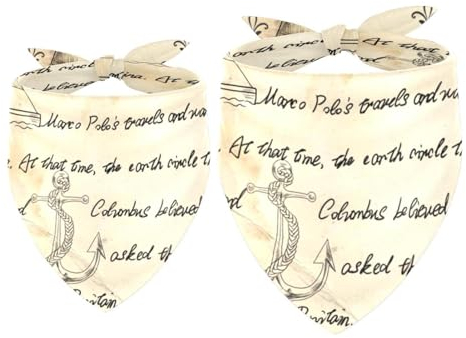 earth circl
believed
Marco Polo's travels and
At that time, the earth circle
Colrombus believed
asked th
Britain.
At that
earth circl
Marco Polo's travels and
At that time, the earth circle t
Colrombus believed
asked th
Britain.